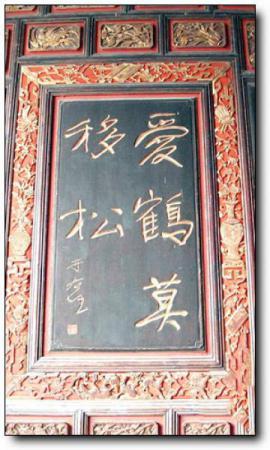 愛鶴莫
移松